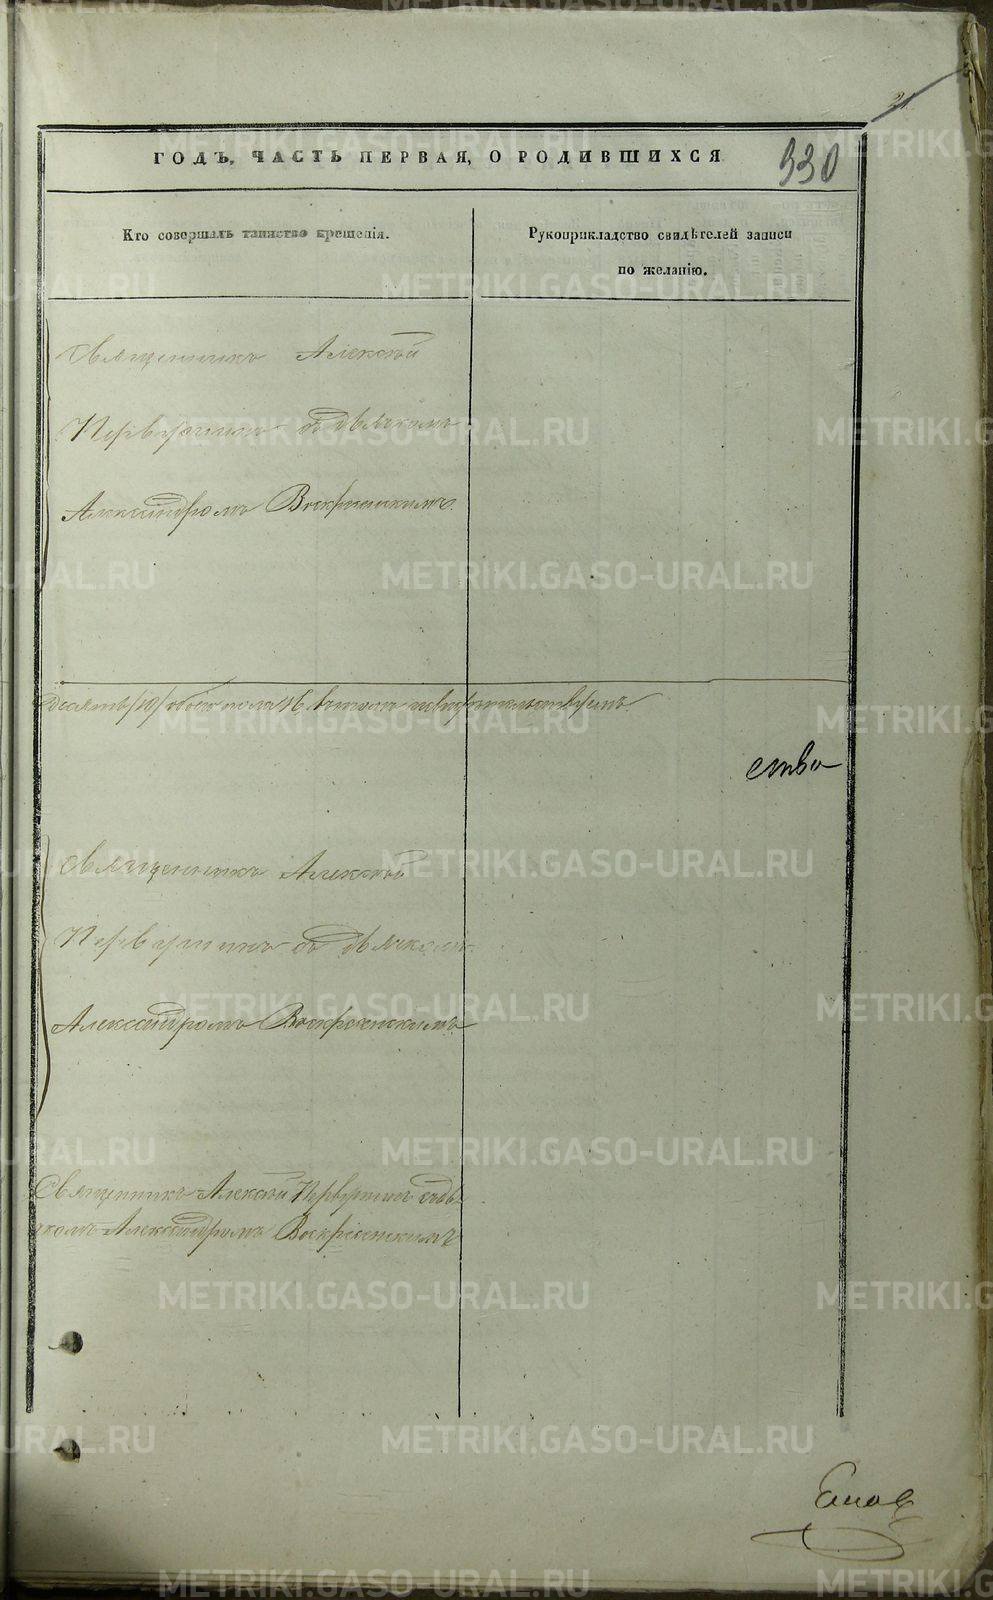 21
ГОДЪ, ЧАСТЬ ПЕРВАЯ, О РОДИВШИХСЯ
330
Кто совершалъ таинство крещенія.
Рукоприкладство свидѣтелей записи
по желанію.
Священникъ Алексѣй
Первушинъ съ дьячкомъ
Александромъ Воскресенскимъ.
Десять /10/ обоего пола 16, въ томъ
ство
Священникъ Алексѣй
Первушинъ съ дьячкомъ
Александромъ Воскресенскимъ
Священникъ Алексѣй Первушинъ съ дья
чкомъ Александромъ Воскресенскимъ
METRIKI.GASO-URAL.RU